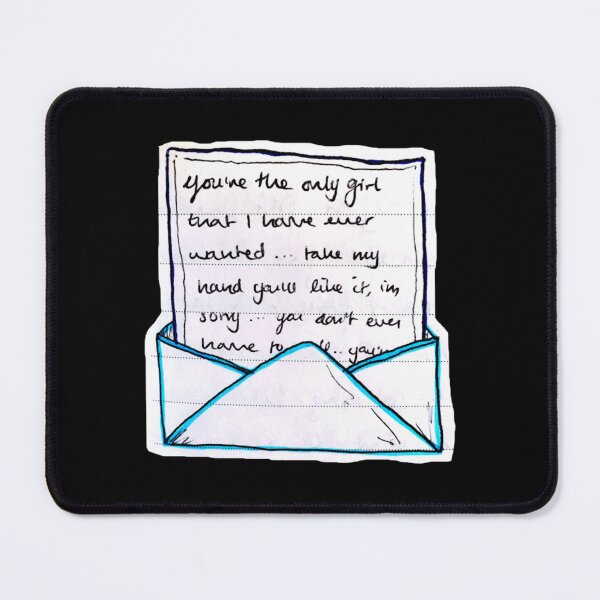 you're the only girl
that I have ever
wanted... take my
hand you'll like it, i'm
sorry... you don't even
have to